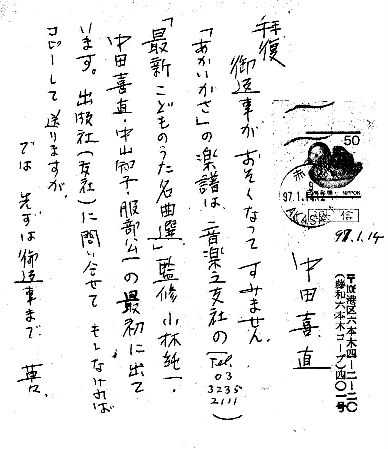 港区六本木四ー二ー二〇
(藤和六本木コープ)四〇一号
中田喜直
50
NIPPON
97.1.14
拝復
御返事が おそくなって すみません。
「あかいかさ」の楽譜は 音楽之友社の
(Tel. 03 3235 2111)
「最新 こどものうた名曲選」監修 小林純一・
中田喜直・中山知子・服部公一の最初に出て
います。出版社(友社)に問い合せて もしなければ
コピーして 送りますが。
では 先ずは御返事まで 草々